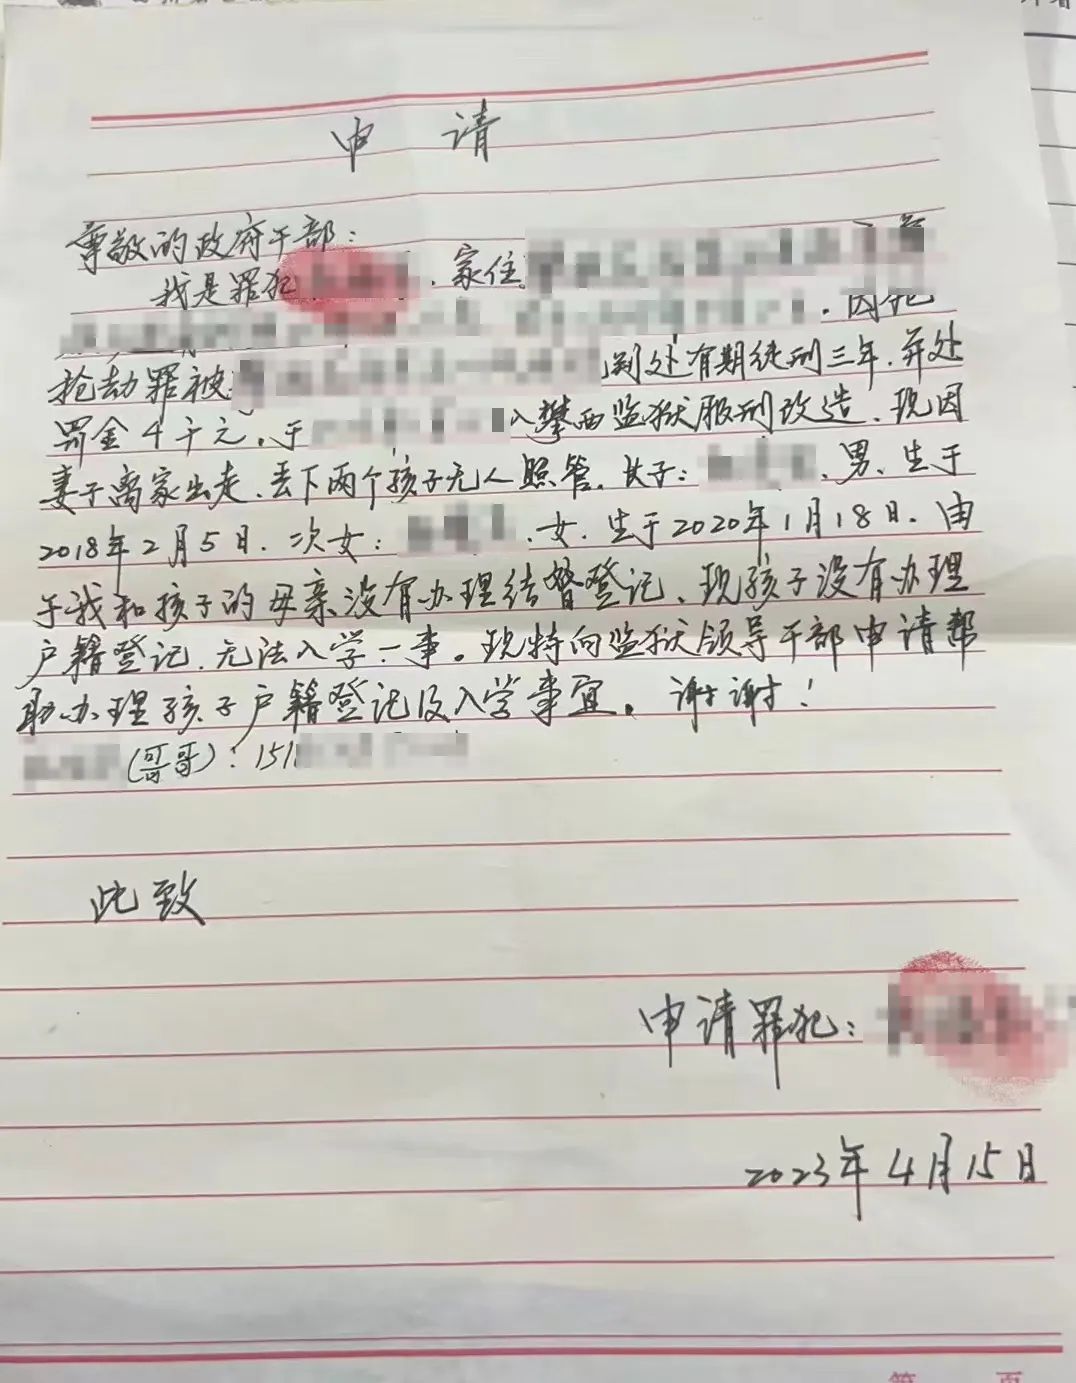 申 请
尊敬的政府干部:
我是罪犯 , 家住
。因犯
抢劫罪被 判处有期徒刑三年,并处
罚金4千元。于 入攀西监狱服刑改造,现因
妻子离家出走,丢下两个孩子无人照管,长子: ,男,生于
2018年2月5日,次女: ,女,生于2020年1月18日,由
于我和孩子的母亲没有办理结婚登记,现孩子没有办理
户籍登记,无法入学一事。现特向监狱领导干部申请帮
助办理孩子户籍登记及入学事宜。谢谢!
(哥哥):151
此致
申请罪犯:
2023年4月15日
第 页